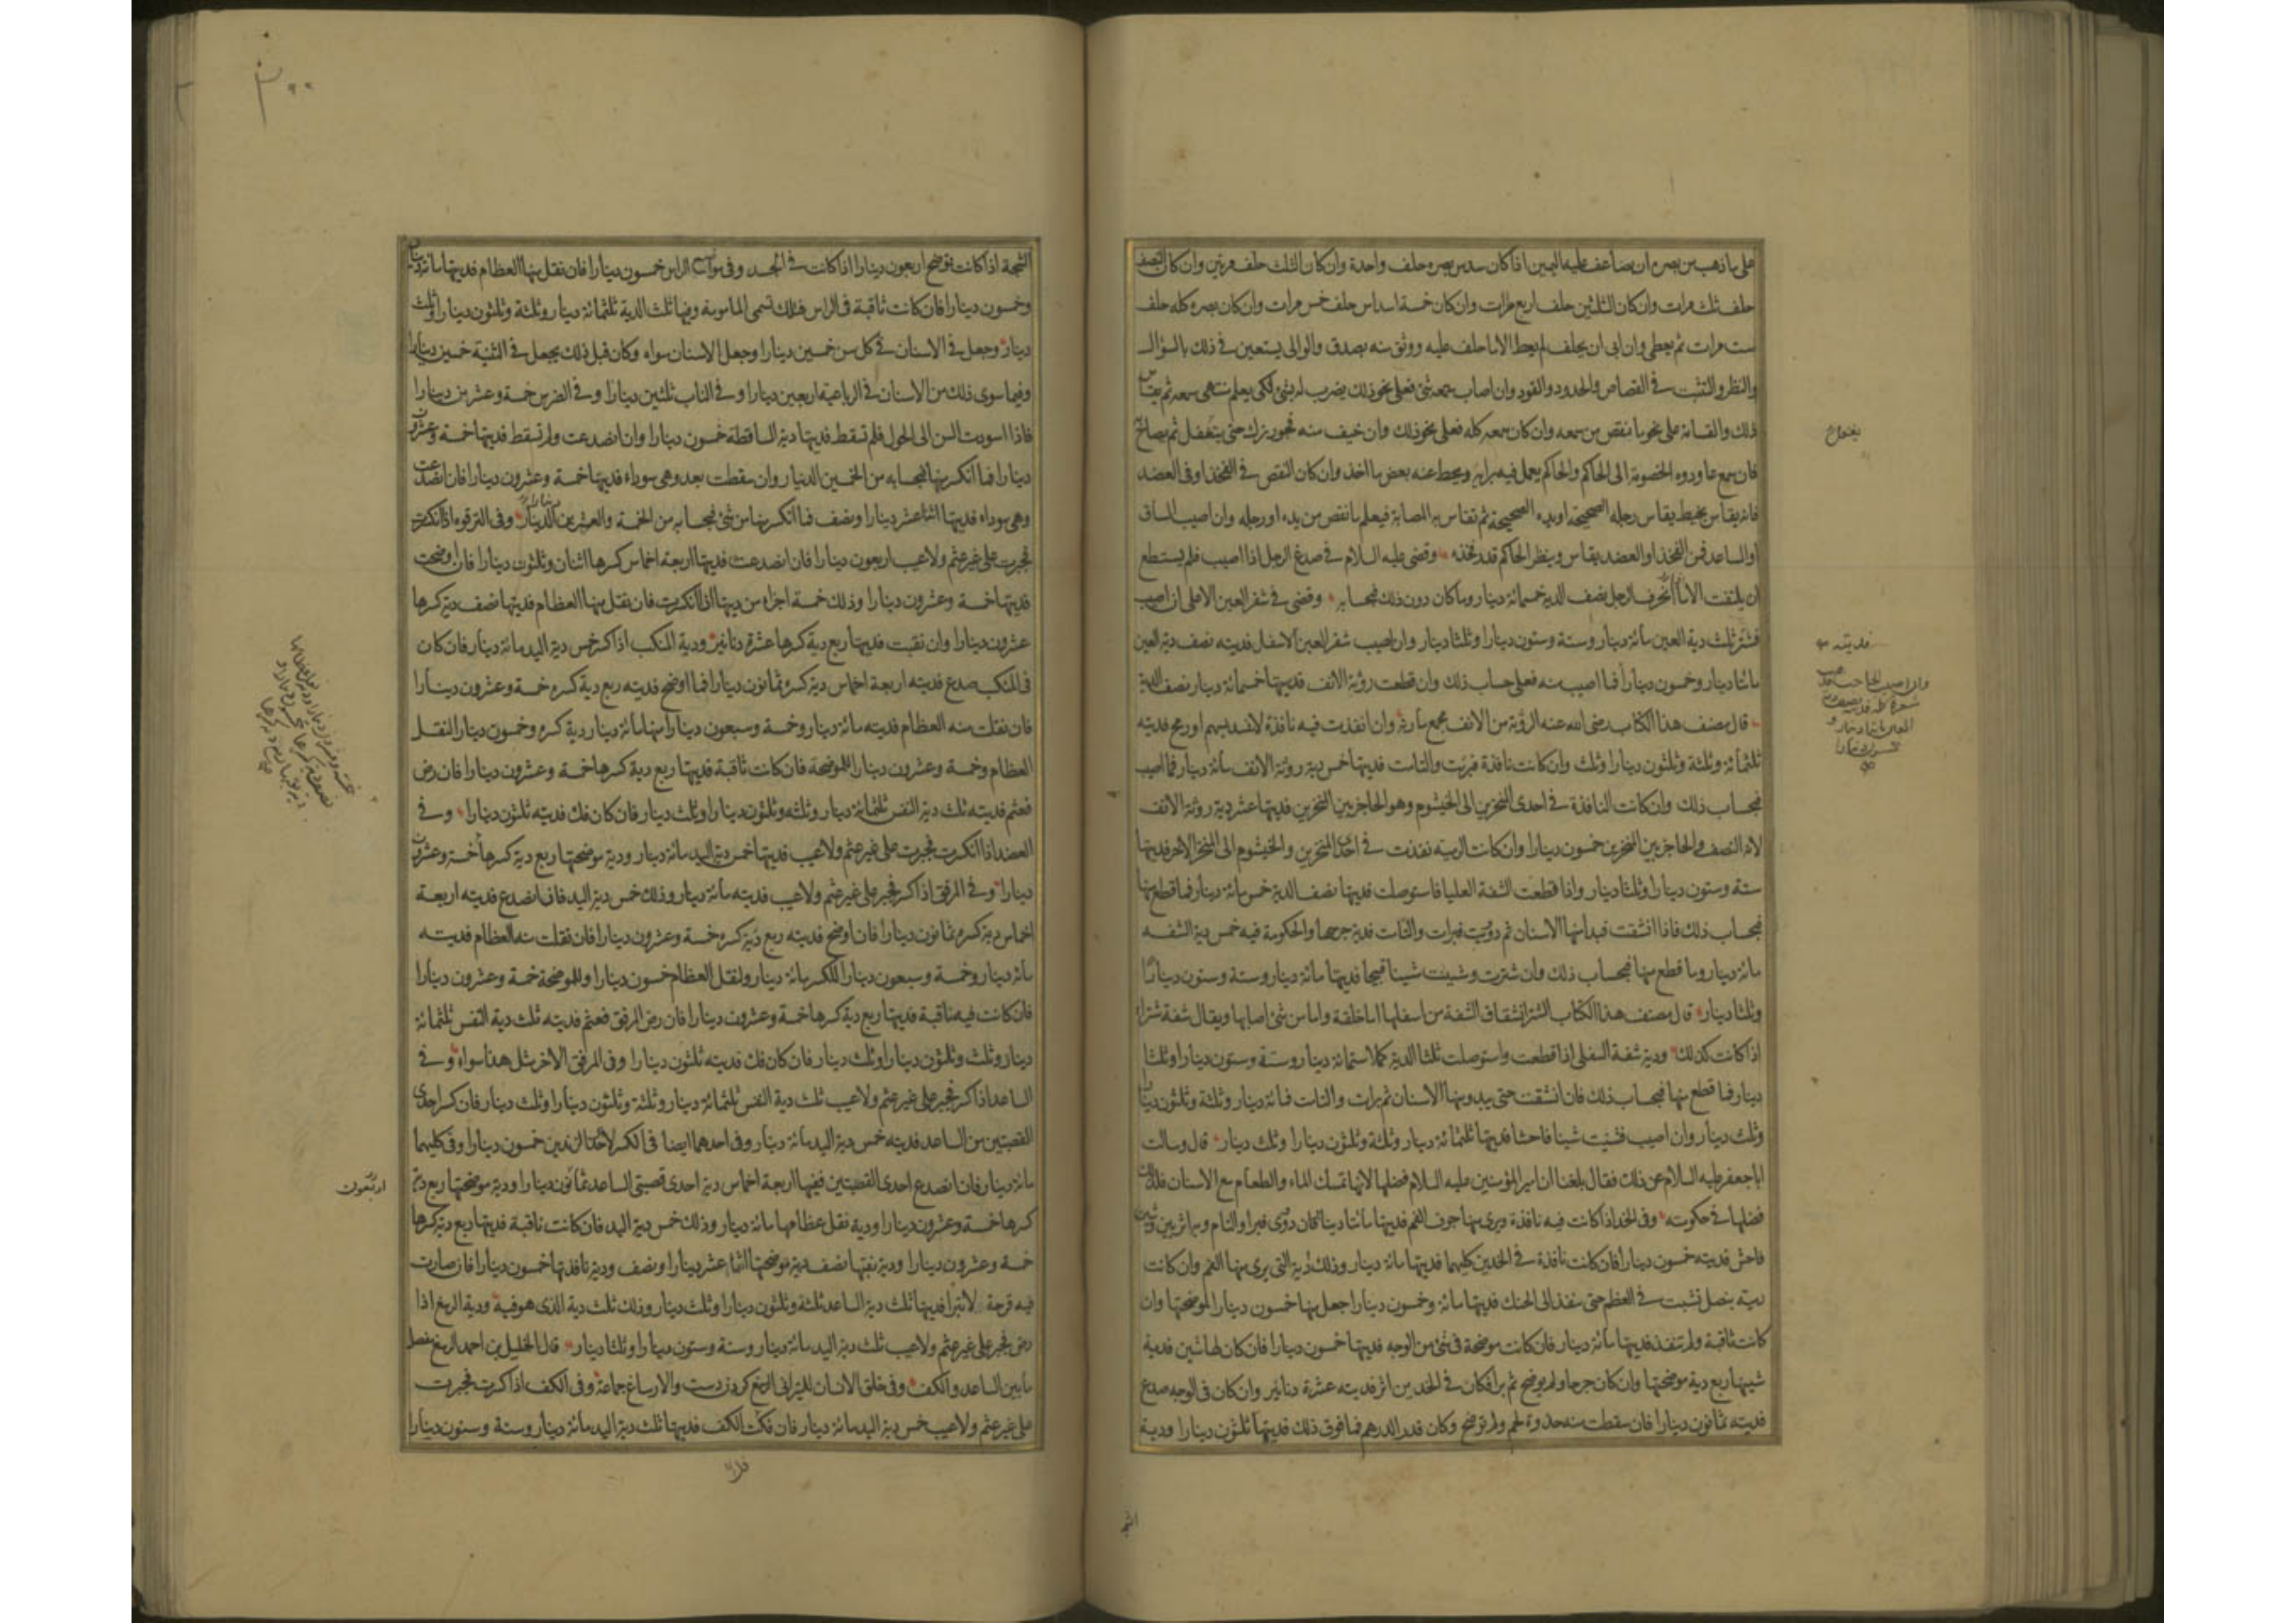 على ما ذهب من بصره ان يضاعف عليه اليمين اذا كان سدس بصره حلف واحدة وان كان الثلث حلف مرتين وان كان النصف
حلف ثلث مرات وان كان الثلثين حلف اربع مرات وان كان خمسة اسداس حلف خمس مرات وان كان بصره كله حلف
ست مرات ثم يعطى وان ابى ان يحلف لم يعط الا ما حلف عليه ووثق منه بصدق والوالى يستعين فى ذلك بالسؤال
والنظر والتثبت فى القصاص والحدود والقود وان اصاب سمعه شئ فعلى نحو ذلك يضرب له بشئ لكى يعلم منتهى سمعه ثم يقاس
ذلك والقسامة على نحو ما نقص من سمعه وان كان سمعه كله فعلى نحو ذلك وان خيف منه فجور ترك حتى يتغفل ثم يصاح
فان سمع عاودوه الخصومة الى الحاكم والحاكم يعمل فيه برايه ويحط عنه بعض ما اخذ وان كان النقص فى الفخذ او فى العضد
فانه يقاس بخيط يقاس رجله الصحيحة او يده الصحيحة ثم تقاس به المصابة فيعلم ما نقص من يده او رجله وان اصيب الساق
او الساعد فمن الفخذ او العضد يقاس وينظر الحاكم قدر فخذه وقضى عليه السلام فى صدغ الرجل اذا اصيب فلم يستطع
ان يلتفت الا ما انحرف الرجل نصف الدية خمسمائة دينار وما كان دون ذلك فبحسابه وقضى فى شفر العين الاعلى ان اصيب
فشتر ثلث دية العين مائة دينار وستة وستون دينارا وثلثا دينار وان اصيب شفر العين الاسفل فديته نصف دية العين
مائتا دينار وخمسون دينارا فما اصيب منه فعلى حساب ذلك وان قطعت روثة الانف فديتها خمسمائة دينار نصف الدية
قال مصنف هذا الكتاب رضى الله عنه الروثة من الانف مجمع مارنه وان انفذت فيه نافذة لا تنسد بسهم او رمح فديته
ثلثمائة وثلثة وثلثون دينارا وثلث وان كانت نافذة فبرئت والتامت فديتها خمس دية روثة الانف مائة دينار فما اصيب
فبحساب ذلك وان كانت النافذة فى احدى المنخرين الى الخيشوم وهو الحاجز بين المنخرين فديتها عشر دية روثة الانف
لانه النصف والحاجز بين المنخرين خمسون دينارا وان كانت الرمية نفذت فى احدى المنخرين والخيشوم الى المنخر الاخر فديتها
ستة وستون دينارا وثلثا دينار واذا قطعت الشفة العليا فاستوصلت فديتها نصف الدية خمس مائة دينار فما قطع منها
فبحساب ذلك فاذا انشقت فبدا منها الاسنان ثم دوويت فبرات والتامت فدية جرحها والحكومة فيه خمس دية الشفه
مائة دينار وما قطع منها فبحساب ذلك وان شترت وشينت شينا قبيحا فديتها مائة دينار وستة وستون دينارا
وثلثا دينار قال مصنف هذا الكتاب الشتر انشقاق الشفة من اسفلها اما خلقة واما من شئ اصابها ويقال شفة شتراء
اذا كانت كذلك ودية شفة السفلى اذا قطعت واستوصلت ثلثا الدية كملا ستمائة دينار وستة وستون دينارا وثلثا
دينار فما قطع منها فبحساب ذلك فان انشقت حتى يبدو منها الاسنان ثم برات والتامت فمائة دينار وثلثة وثلثون دينارا
وثلث دينار وان اصيب فشينت شينا فاحشا فديتها ثلثمائة دينار وثلثة وثلثون دينارا وثلث دينار قال وسالت
ابا جعفر عليه السلام عن ذلك فقال بلغنا ان امير المؤمنين عليه السلام فضلها لانها تمسك الماء والطعام مع الاسنان فلذلك
فضلها فى حكومته وفى الخد اذا كانت فيه نافذة ويرى منها جوف الفم فديتها مائتا دينار فان دووى فبرا والتام وبه اثر بين وشين
فاحش فديته خمسون دينارا فان كانت نافذة فى الخدين كليهما فديتها مائة دينار وذلك دية التى يرى منها الفم وان كانت
رمية بنصل تشبت فى العظم حتى ينفذ الى الحنك فديتها مائة وخمسون دينارا جعل منها خمسون دينارا لموضحتها وان
كانت ثاقبة ولم تنفذ فديتها مائة دينار فان كانت موضحة فى شئ من الوجه فديتها خمسون دينارا فان كان لها شين فدية
شينها ربع دية موضحتها وان كان جرحا ولم يوضح ثم برا فكان فى الخدين اثر فديته عشرة دنانير وان كان فى الوجه صدع
فديته ثمانون دينارا فان سقطت منه جذوة لحم ولم توضح وكان قدر الدرهم فما فوق ذلك فديتها ثلثون دينارا ودية
فديته
وان اصيب الحاجب فذهب
شعره كله فديته نصف دية
العين مائتا دينار و
خمسون دينارا
الشجة اذا كانت توضح اربعون دينارا اذا كانت فى الجسد وفى مواضع الراس خمسون دينارا فان نقل منها العظام فديتها مائة دينار
وخمسون دينارا فان كانت ثاقبة فى الراس فتلك تسمى المامومة وفيها ثلث الدية ثلثمائة دينار وثلثة وثلثون دينارا وثلث
دينار وجعل فى الاسنان فى كل سن خمسين دينارا وجعل الاسنان سواء وكان قبل ذلك يجعل فى الثنية خمسين دينارا
وفيما سوى ذلك من الاسنان فى الرباعية اربعين دينارا وفى الناب ثلثين دينارا وفى الضرس خمسة وعشرين دينارا
فاذا اسودت السن الى الحول فلم تسقط فديتها دية الساقطة خمسون دينارا وان انصدعت ولم تسقط فديتها خمسة وعشرون
دينارا فما انكسر منها فبحسابه من الخمسين الدينار وان سقطت بعد وهى سوداء فديتها خمسة وعشرون دينارا فان انصدعت
وهى سوداء فديتها اثنا عشر دينارا ونصف فما انكسر منها من شئ فبحسابه من الخمسة والعشرين الدينار وفى الترقوة اذا انكسرت
فجبرت على غير عثم ولا عيب اربعون دينارا فان انصدعت فديتها اربعة اخماس كسرها اثنان وثلثون دينارا فان اوضحت
فديتها خمسة وعشرون دينارا وذلك خمسة اجزاء من ديتها اذا انكسرت فان نقل منها العظام فديتها نصف دية كسرها
عشرون دينارا وان نقبت فديتها ربع دية كسرها عشرة دنانير ودية المنكب اذا كسر خمس دية اليد مائة دينار فان كان
فى المنكب صدع فديته اربعة اخماس دية كسره ثمانون دينارا فما اوضح فديته ربع دية كسره خمسة وعشرون دينارا
فان نقلت منه العظام فديته مائة دينار وخمسة وسبعون دينارا منها مائة دينار دية كسره وخمسون دينارا لنقل
العظام وخمسة وعشرون دينارا للموضحة فان كانت ثاقبة فديتها ربع دية كسرها خمسة وعشرون دينارا فان رض
فعثم فديته ثلث دية النفس ثلثمائة دينار وثلثه وثلثون دينارا وثلث دينار فان كان فك فديته ثلثون دينارا وفى
العضد اذا انكسرت فجبرت على غير عثم ولا عيب فديتها خمس دية اليد مائة دينار ودية موضحتها ربع دية كسرها خمسة وعشرون
دينارا وفى المرفق اذا كسر فجبر على غير عثم ولا عيب فديته مائة دينار وذلك خمس دية اليد فان انصدع فديته اربعة
اخماس دية كسره ثمانون دينارا فان اوضح فديته ربع دية كسره خمسة وعشرون دينارا فان نقلت منه العظام فديته
مائة دينار وخمسة وسبعون دينارا للكسر مائة دينار ولنقل العظام خمسون دينارا وللموضحة خمسة وعشرون دينارا
فان كانت فيه ناقبة فديتها ربع دية كسرها خمسة وعشرون دينارا فان رض المرفق فعثم فديته ثلث دية النفس ثلثمائة
دينار وثلث وثلثون دينارا وثلث دينار فان كان فك فديته ثلثون دينارا وفى المرفق الاخر مثل هذا سواء وفى
الساعد اذا كسر فجبر على غير عثم ولا عيب ثلث دية النفس ثلثمائة دينار وثلثة وثلثون دينارا وثلث دينار فان كسر احدى
القصبتين من الساعد فديته خمس دية اليد مائة دينار وفى احدهما ايضا فى الكسر لاحد الزندين خمسون دينارا وفى كليهما
مائة دينار فان انصدع احدى القصبتين ففيها اربعة اخماس دية احدى قصبتى الساعد ثمانون دينارا ودية موضحتها ربع دية
كسرها خمسة وعشرون دينارا ودية نقل عظامها مائة دينار وذلك خمس دية اليد فان كانت ناقبة فديتها ربع دية كسرها
خمسة وعشرون دينارا ودية نقبها نصف دية موضحتها اثنا عشر دينارا ونصف ودية نافذتها خمسون دينارا فان صارت
فيه قرحة لا تبرا فديتها ثلث دية الساعد ثلثة وثلثون دينارا وثلث دينار وذلك ثلث دية الذى هو فيه ودية الرسغ اذا
رض فجبر على غير عثم ولا عيب ثلث دية اليد مائة دينار وستة وستون دينارا وثلثا دينار قال الخليل بن احمد الرسغ مفصل
ما بين الساعد والكف وفى خلق الانسان للمبرانى الرسغ گردن دست والارساغ جماعة وفى الكف اذا كسرت فجبرت
على غير عثم ولا عيب خمس دية اليد مائة دينار فان فكت الكف فديتها ثلث دية اليد مائة دينار وستة وستون دينارا
اربعون